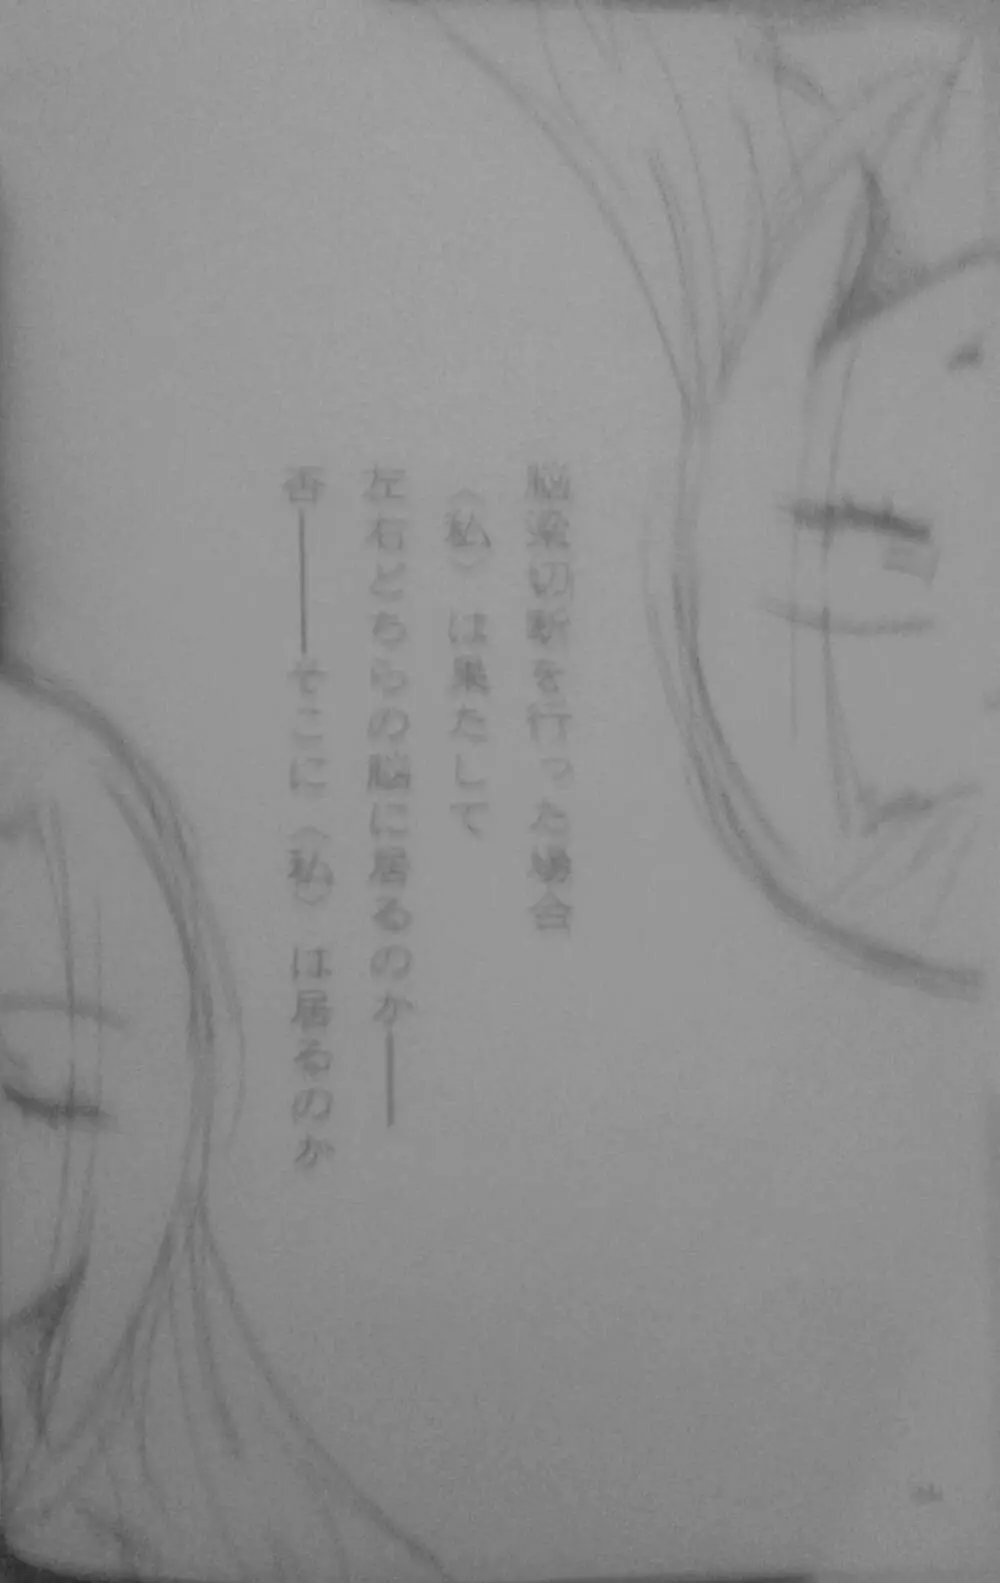 脳梁切断を行った場合
〈私〉は果たして
左右どちらの脳に居るのか――
否――そこに〈私〉は居るのか